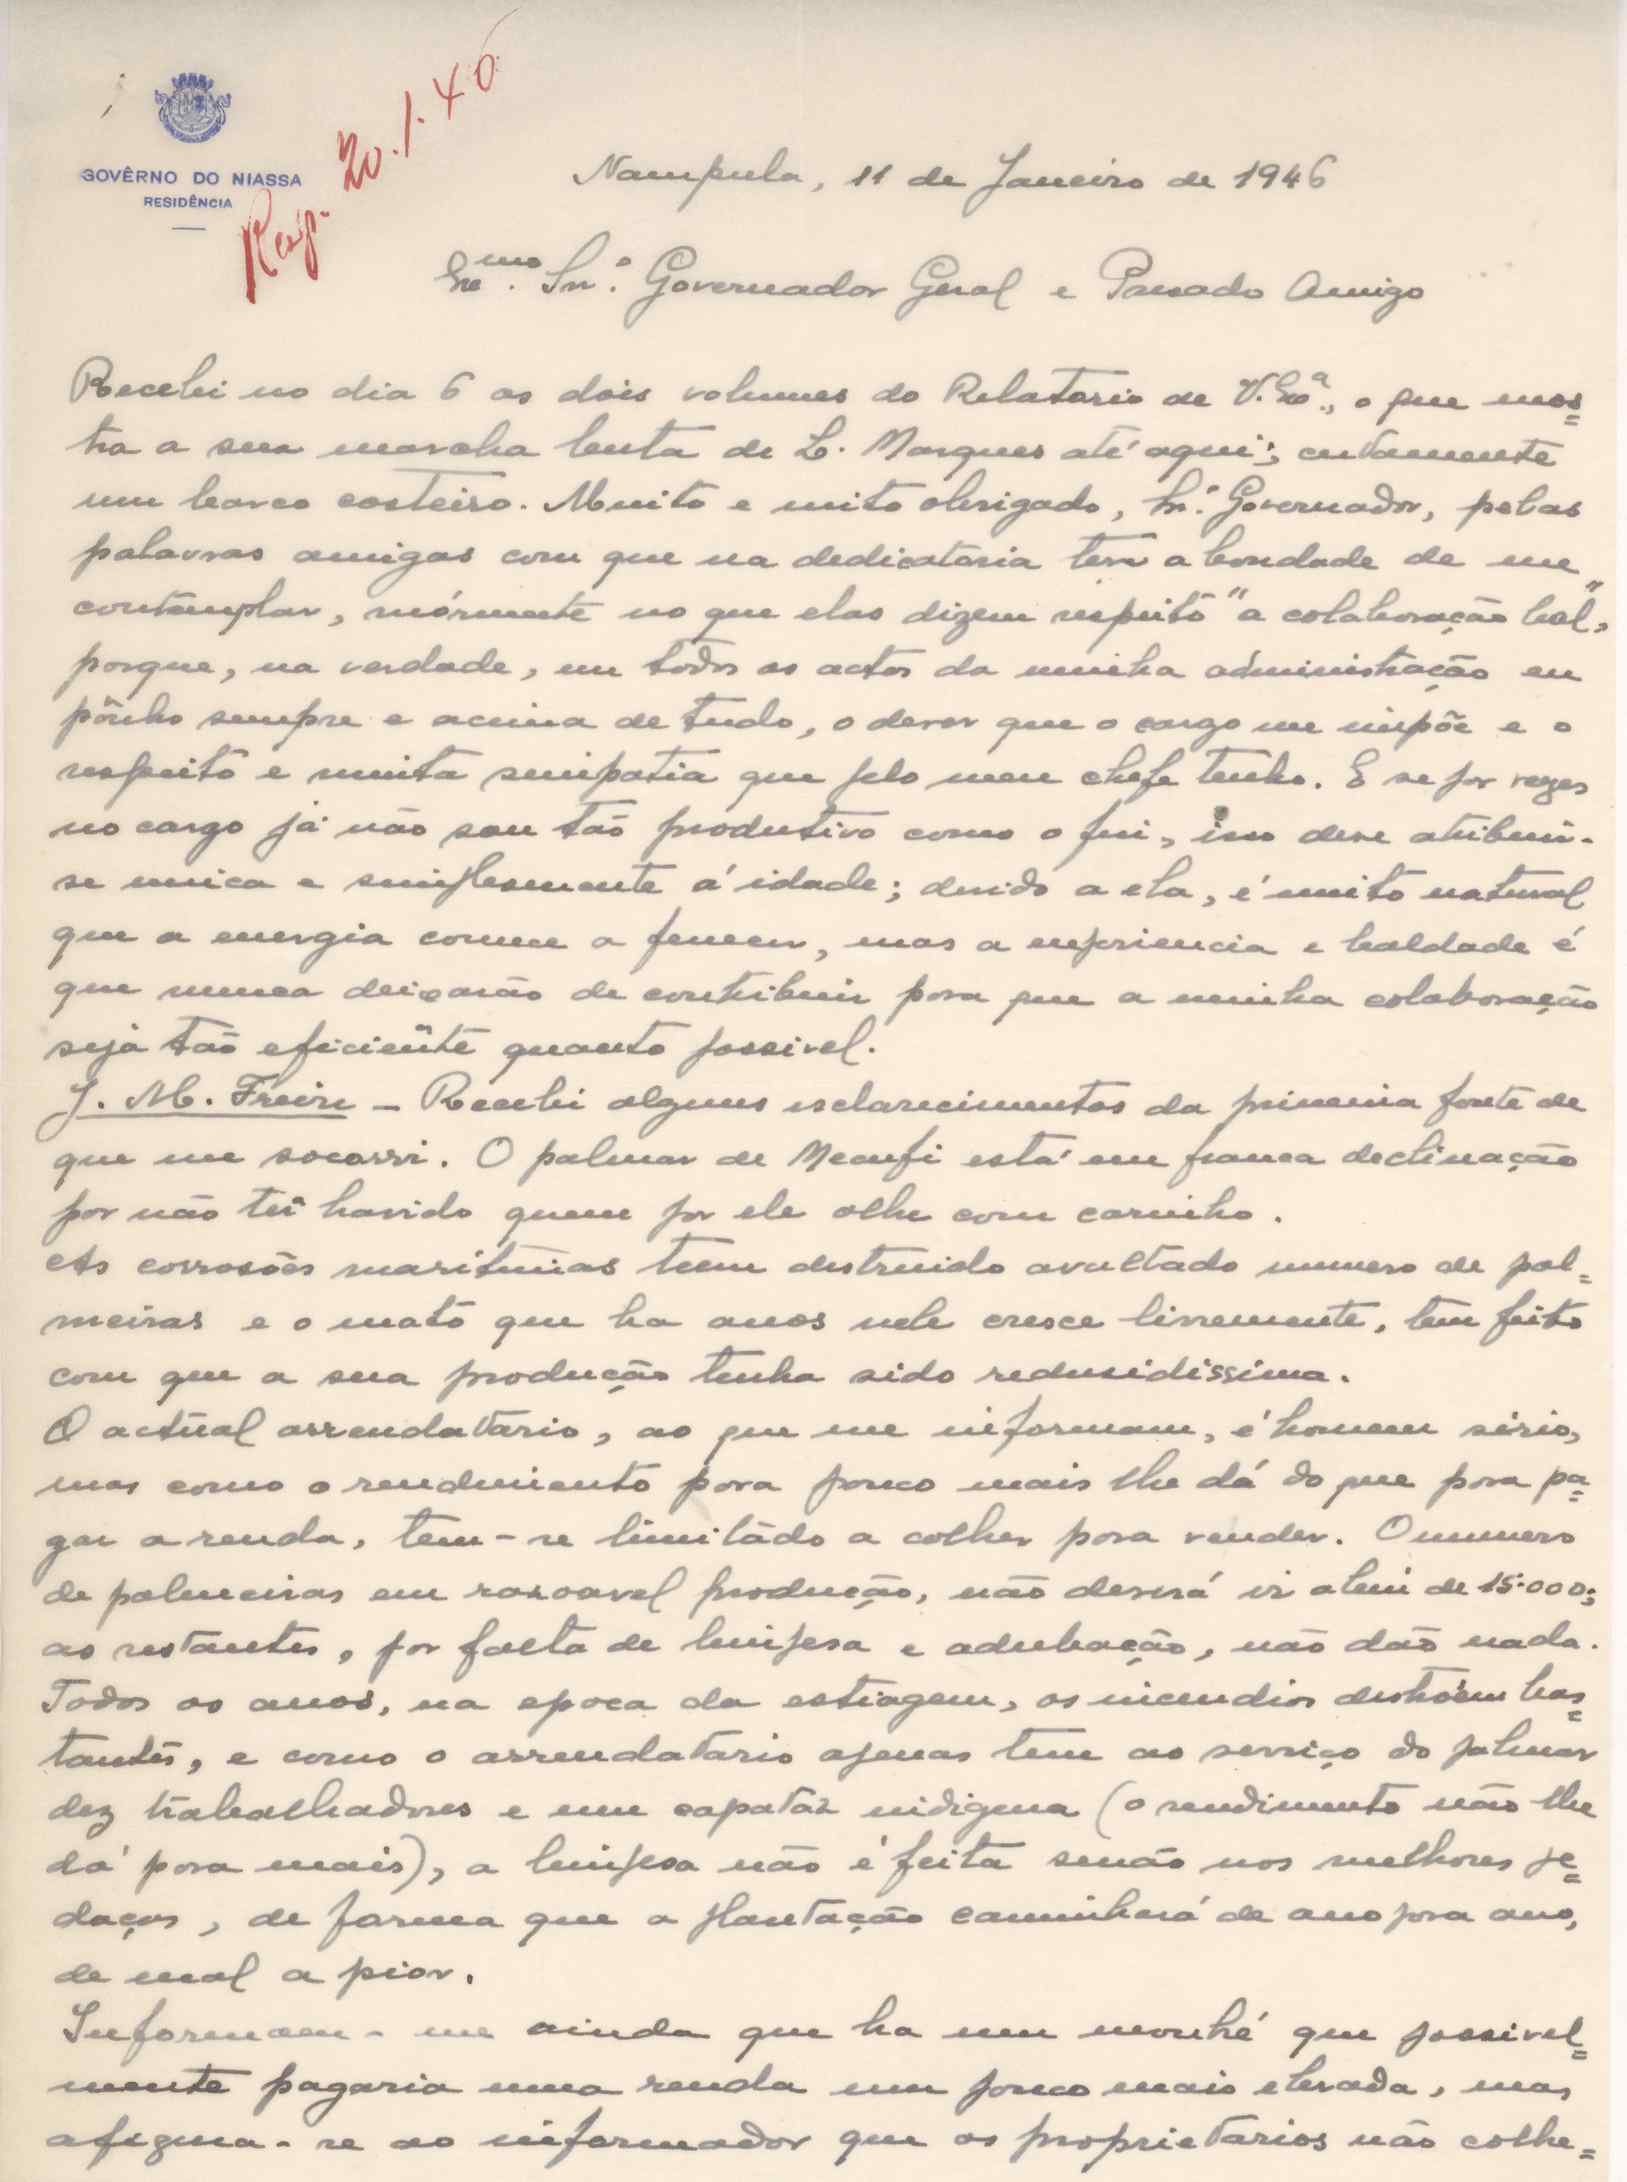 GOVÊRNO DO NIASSA
RESIDÊNCIA
Resp. 20.1.46
Nampula, 11 de Janeiro de 1946
Exmo. Snr. Governador Geral e Presado Amigo
Recebi no dia 6 os dois volumes do Relatorio de V. Exª., o que mos=
tra a sua marcha lenta de L. Marques até aqui; certamente
um barco costeiro. Muito e muito obrigado, Snr. Governador, pelas
palavras amigas com que na dedicatoria teve a bondade de me
contemplar, mórmente no que elas dizem respeito "a colaboração leal",
porque, na verdade, em todos os actos da minha administração eu
pônho sempre e acima de tudo, o dever que o cargo me impõe e o
respeito e muita simpatia que pelo meu chefe tenho. E se por vezes
no cargo já não sou tão produtivo como o fui, isso deve atribuir-
se unica e simplesmente á idade; devido a ela, é muito natural
que a energia comece a fenecer, mas a experiencia e lealdade é
que nunca deixarão de contribuir para que a minha colaboração
seja tão eficiente quanto possivel.
J. M. Freire - Recebi alguns esclarecimentos da primeira fonte de
que me socorri. O palmar de Mecufi está em franca declinação
por não ter havido quem por ele olhe com carinho.
As corrosões maritimas teem destruido avultado numero de pal=
meiras e o mato que ha anos nele cresce livremente, tem feito
com que a sua produção tenha sido redusidissima.
O actual arrendatario, ao que me informam, é homem sério,
mas como o rendimento para pouco mais lhe dá do que para pa=
gar a renda, tem-se limitado a colher para vender. O numero
de palmeiras em rasoavel produção, não deverá ir alem de 15.000;
as restantes, por falta de limpesa e adubação, não dão nada.
Todos os anos, na epoca da estiagem, os incendios destroem bas=
tantes, e como o arrendatario apenas tem ao serviço do palmar
dez trabalhadores e um capataz indigena (o rendimento não lhe
dá para mais), a limpesa não é feita senão nos melhores pe=
daços, de forma que a plantação caminhará de ano para ano,
de mal a pior.
Informam-me ainda que ha um monhé que possivel=
mente pagaria uma renda um pouco mais elevada, mas
afigura-se ao informador que os proprietarios não colhe=